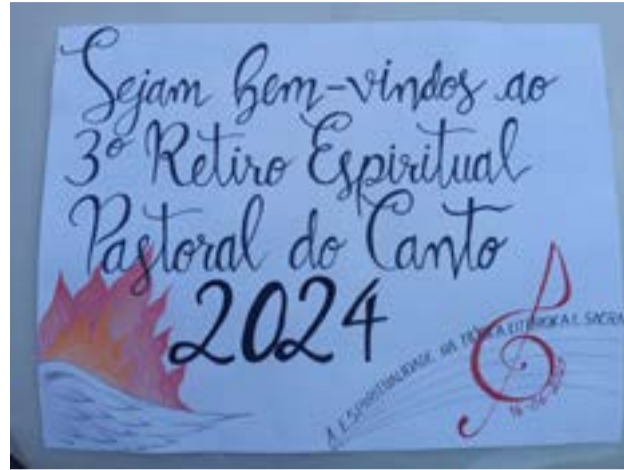 Sejam bem-vindos ao
3º Retiro Espiritual
Pastoral do Canto
2024
A ESPIRITUALIDADE NA MÚSICA LITÚRGICA E SACRA